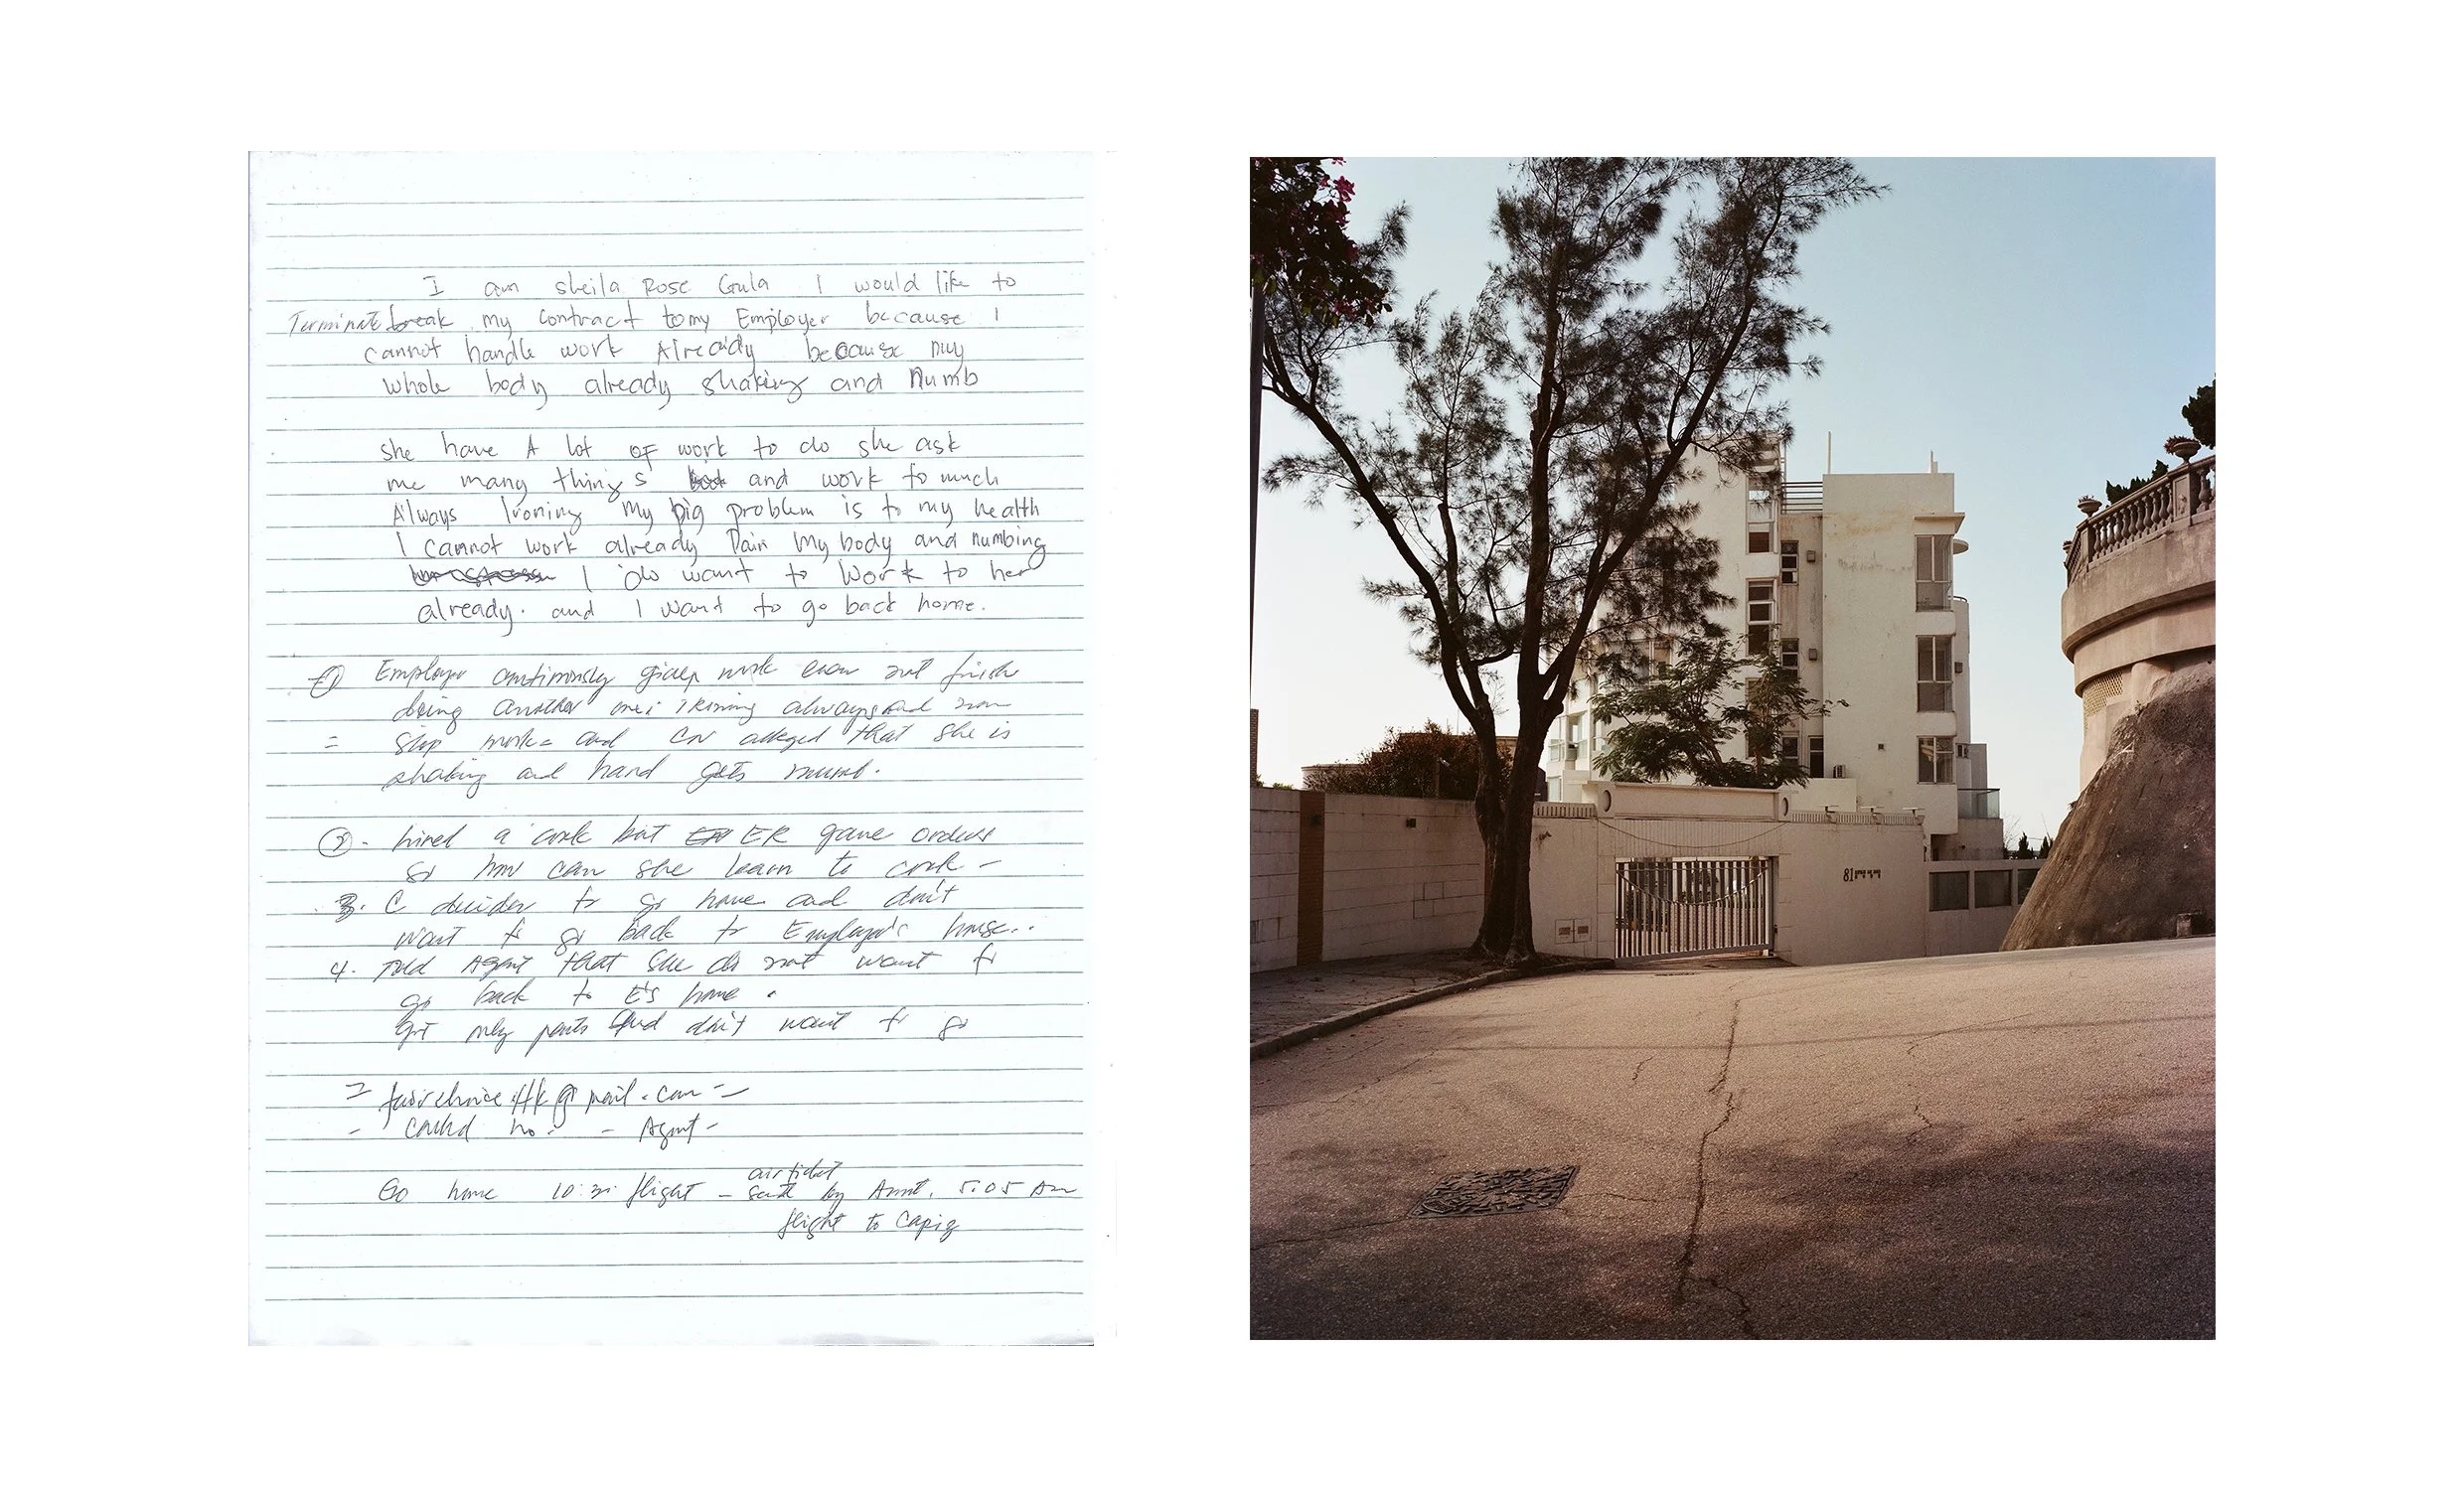 I am sheila Rose Gula I would like to
Terminate break my contract to my Employer because I
cannot handle work Already because my
whole body already shaking and Numb
she have A lot of work to do she ask
me many things and work to much
Always Ironing My big problem is to my health
I cannot work already Pain My body and numbing
I do want to Work to her
already. and I want to go back home.
① Employer continuously gives work even not finish
doing another one; Ironing always and non
= stop work = and alleged that she is
shaking and hand gets numb.
②. hired a cook but ER gave orders
so how can she learn to cook -
3. C decides to go home and don't
want to go back to Employer's house..
4. Told Agent that she do not want to
go back to E's home.
Got only pants and don't want to go
= fairchoice.Hk@gmail.com =
- called no. - Agent -
air ticket
Go home flight - sent by Aunt, 5:05 Am
flight to Capiz
81